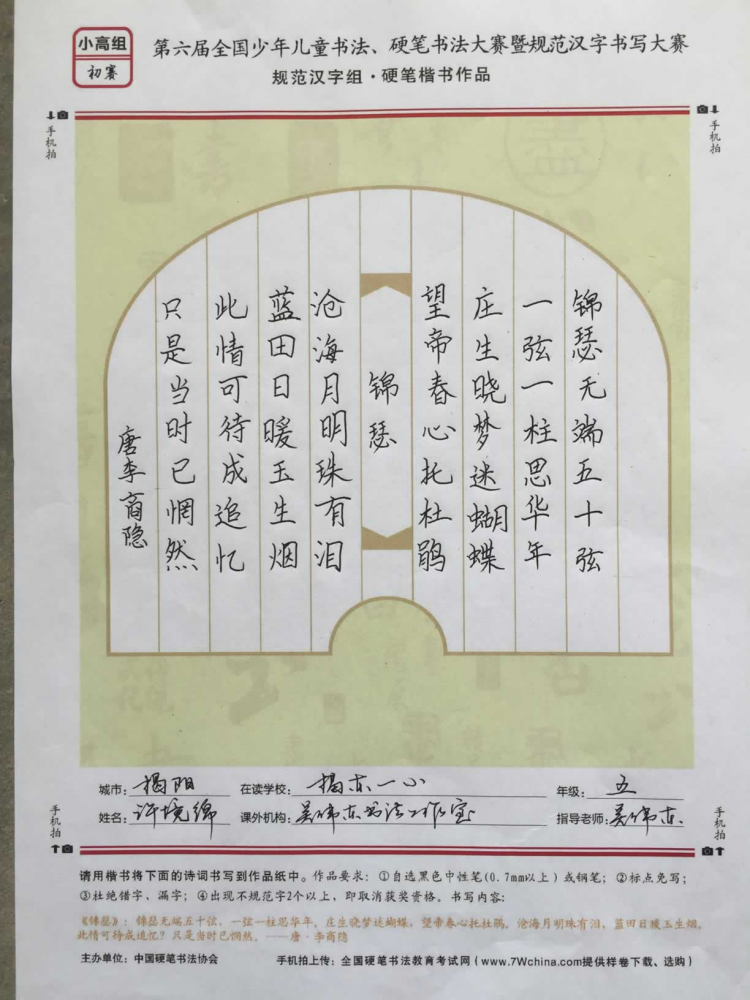 小高组
初赛
第六届全国少年儿童书法、硬笔书法大赛暨规范汉字书写大赛
规范汉字组·硬笔楷书作品
手机拍
手机拍
锦瑟无端五十弦
一弦一柱思华年
庄生晓梦迷蝴蝶
望帝春心托杜鹃
锦瑟
沧海月明珠有泪
蓝田日暖玉生烟
此情可待成追忆
只是当时已惘然
唐李商隐
城市：揭阳 在读学校：揭东一小 年级：五
姓名：许境绵 课外机构：吴伟东书法工作室 指导老师：吴伟东
手机拍
手机拍
请用楷书将下面的诗词书写到作品纸中。作品要求：①自选黑色中性笔(0.7mm以上)或钢笔；②标点免写；
③杜绝错字、漏字；④出现不规范字2个以上，即取消获奖资格。书写内容：
《锦瑟》：锦瑟无端五十弦，一弦一柱思华年。庄生晓梦迷蝴蝶，望帝春心托杜鹃。沧海月明珠有泪，蓝田日暖玉生烟。
此情可待成追忆？只是当时已惘然。——唐·李商隐
主办单位：中国硬笔书法协会 手机拍上传：全国硬笔书法教育考试网(www.7Wchina.com提供样卷下载、选购)